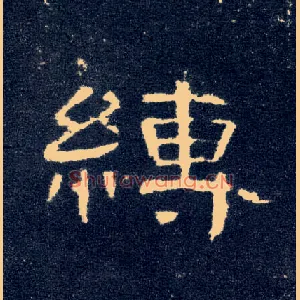 練
Shufawang.cn